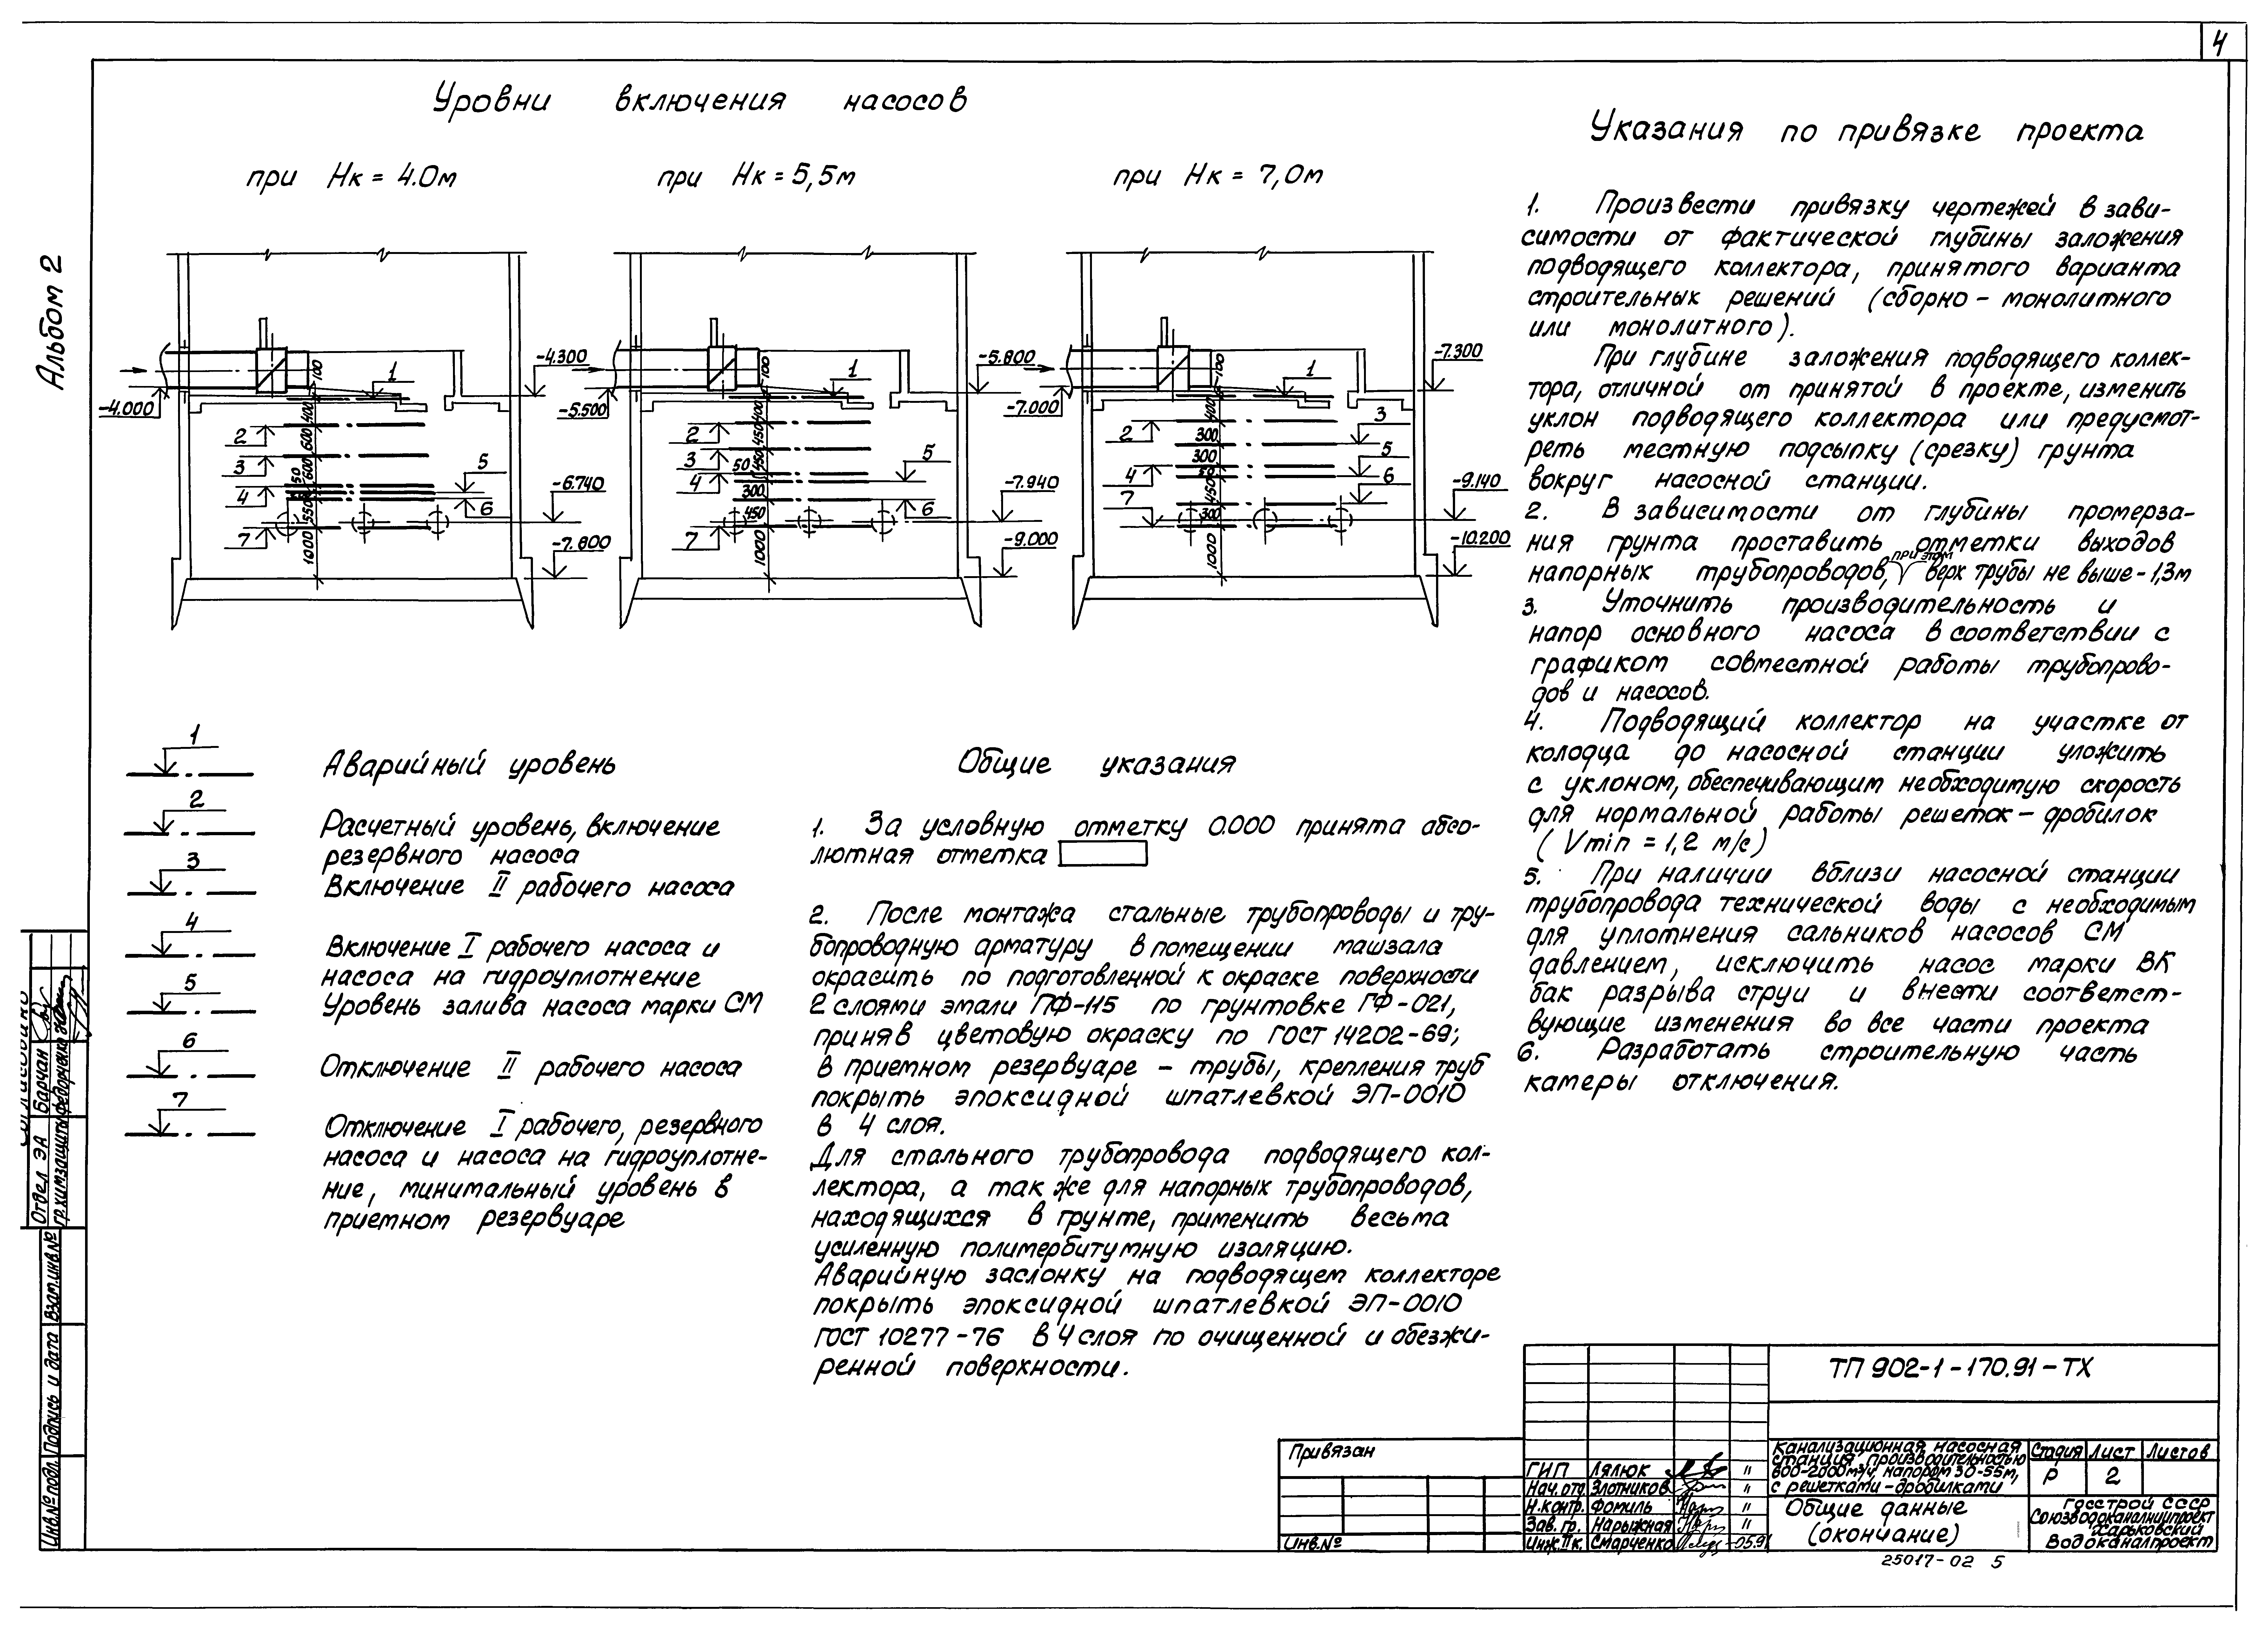 4
Альбом 2
Уровни включения насосов
при Нк = 4.0м
при Нк = 5,5м
при Нк = 7,0м
-4.000
-4.300
-6.740
-7.800
100
400
600
600
50
550
1000
1
2
3
4
5
6
7
-5.500
-5.800
-7.940
-9.000
100
400
450
450
50
300
450
1000
1
2
3
4
5
6
7
-7.000
-7.300
-9.140
-10.200
100
400
300
300
50
450
300
1000
1
2
3
4
5
6
7
1 Аварийный уровень
2 Расчетный уровень, включение
резервного насоса
3 Включение II рабочего насоса
4 Включение I рабочего насоса и
насоса на гидроуплотнение
5 Уровень залива насоса марки СМ
6 Отключение II рабочего насоса
7 Отключение I рабочего, резервного
насоса и насоса на гидроуплотне-
ние, минимальный уровень в
приемном резервуаре
Общие указания
1. За условную отметку 0.000 принята абсо-
лютная отметка
2. После монтажа стальные трубопроводы и тру-
бопроводную арматуру в помещении машзала
окрасить по подготовленной к окраске поверхности
2 слоями эмали ПФ-115 по грунтовке ГФ-021,
приняв цветовую окраску по ГОСТ 14202-69;
в приемном резервуаре - трубы, крепления труб
покрыть эпоксидной шпатлевкой ЭП-0010
в 4 слоя.
Для стального трубопровода подводящего кол-
лектора, а так же для напорных трубопроводов,
находящихся в грунте, применить весьма
усиленную полимербитумную изоляцию.
Аварийную заслонку на подводящем коллекторе
покрыть эпоксидной шпатлевкой ЭП-0010
ГОСТ 10277-76 в 4 слоя по очищенной и обезжи-
ренной поверхности.
Указания по привязке проекта
1. Произвести привязку чертежей в зави-
симости от фактической глубины заложения
подводящего коллектора, принятого варианта
строительных решений (сборно-монолитного
или монолитного).
При глубине заложения подводящего коллек-
тора, отличной от принятой в проекте, изменить
уклон подводящего коллектора или предусмот-
реть местную подсыпку (срезку) грунта
вокруг насосной станции.
2. В зависимости от глубины промерза-
ния грунта проставить отметки выходов
напорных трубопроводов, при этом верх трубы не выше -1,3м
3. Уточнить производительность и
напор основного насоса в соответствии с
графиком совместной работы трубопрово-
дов и насосов.
4. Подводящий коллектор на участке от
колодца до насосной станции уложить
с уклоном, обеспечивающим необходимую скорость
для нормальной работы решеток-дробилок
(Vmin = 1,2 м/с)
5. При наличии вблизи насосной станции
трубопровода технической воды с необходимым
для уплотнения сальников насосов СМ
давлением, исключить насос марки ВК
бак разрыва струи и внести соответст-
вующие изменения во все части проекта
6. Разработать строительную часть
камеры отключения.
Отдел ЭА Барчан
гр.химзащиты Федорченко
Инв.№ подл. Подпись и дата Взам.инв.№
Привязан
Инв.№
ГИП Лялюк "
Нач.отд. Злотников "
Н.контр. Фомиль "
Зав.гр. Нарыжная "
Инж.IIк. Смарченко 05.91
ТП 902-1-170.91-ТХ
Канализационная насосная
станция производительностью
800-2000м³/ч, напором 30-55м,
с решетками-дробилками
Стадия Лист Листов
Р 2
Общие данные
(окончание)
Госстрой СССР
Союзводоканалниипроект
Харьковский
Водоканалпроект
25017-02 5